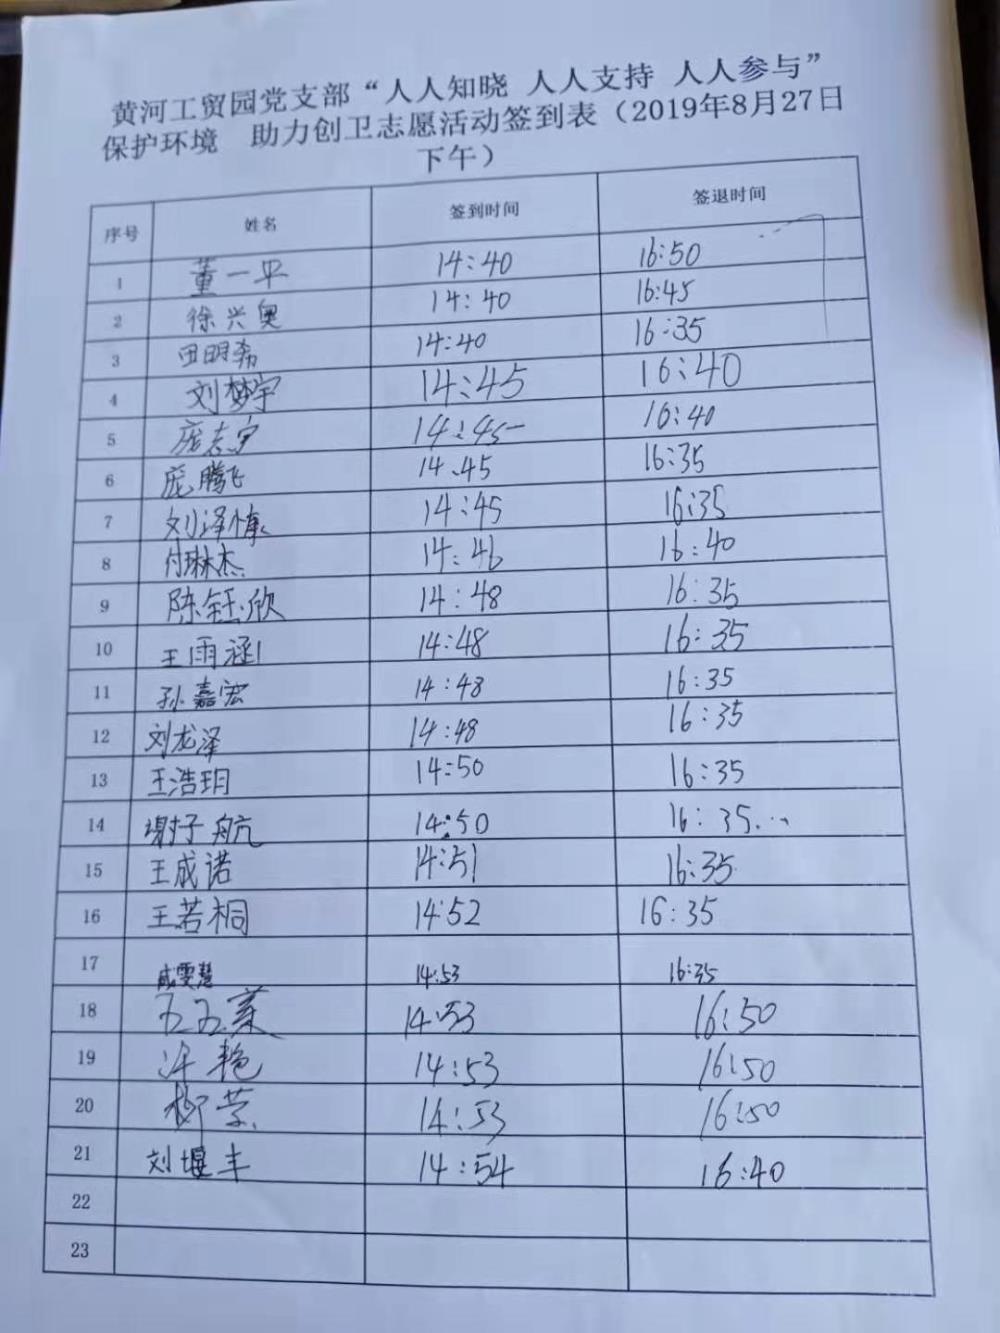 黄河工贸园党支部“人人知晓 人人支持 人人参与”
保护环境 助力创卫志愿活动签到表（2019年8月27日
下午）
序号 姓名 签到时间 签退时间
1 董一平 14:40 16:50
2 徐兴奥 14:40 16:45
3 田明希 14:40 16:35
4 刘梦宇 14:45 16:40
5 庞志宁 14:45 16:40
6 庞腾飞 14.45 16:35
7 刘泽慷 14:45 16:35
8 付琳杰 14:46 16:40
9 陈钰欣 14:48 16:35
10 王雨涵 14:48 16:35
11 孙嘉宏 14:48 16:35
12 刘龙泽 14:48 16:35
13 王浩玥 14:50 16:35
14 谢子航 14:50 16:35
15 王成诺 14:51 16:35
16 王若桐 14:52 16:35
17 戚雯慧 14:53 16:35
18 14:53 16:50
19 许艳 14:53 16:50
20 14:53 16:50
21 刘堰丰 14:54 16:40
22
23